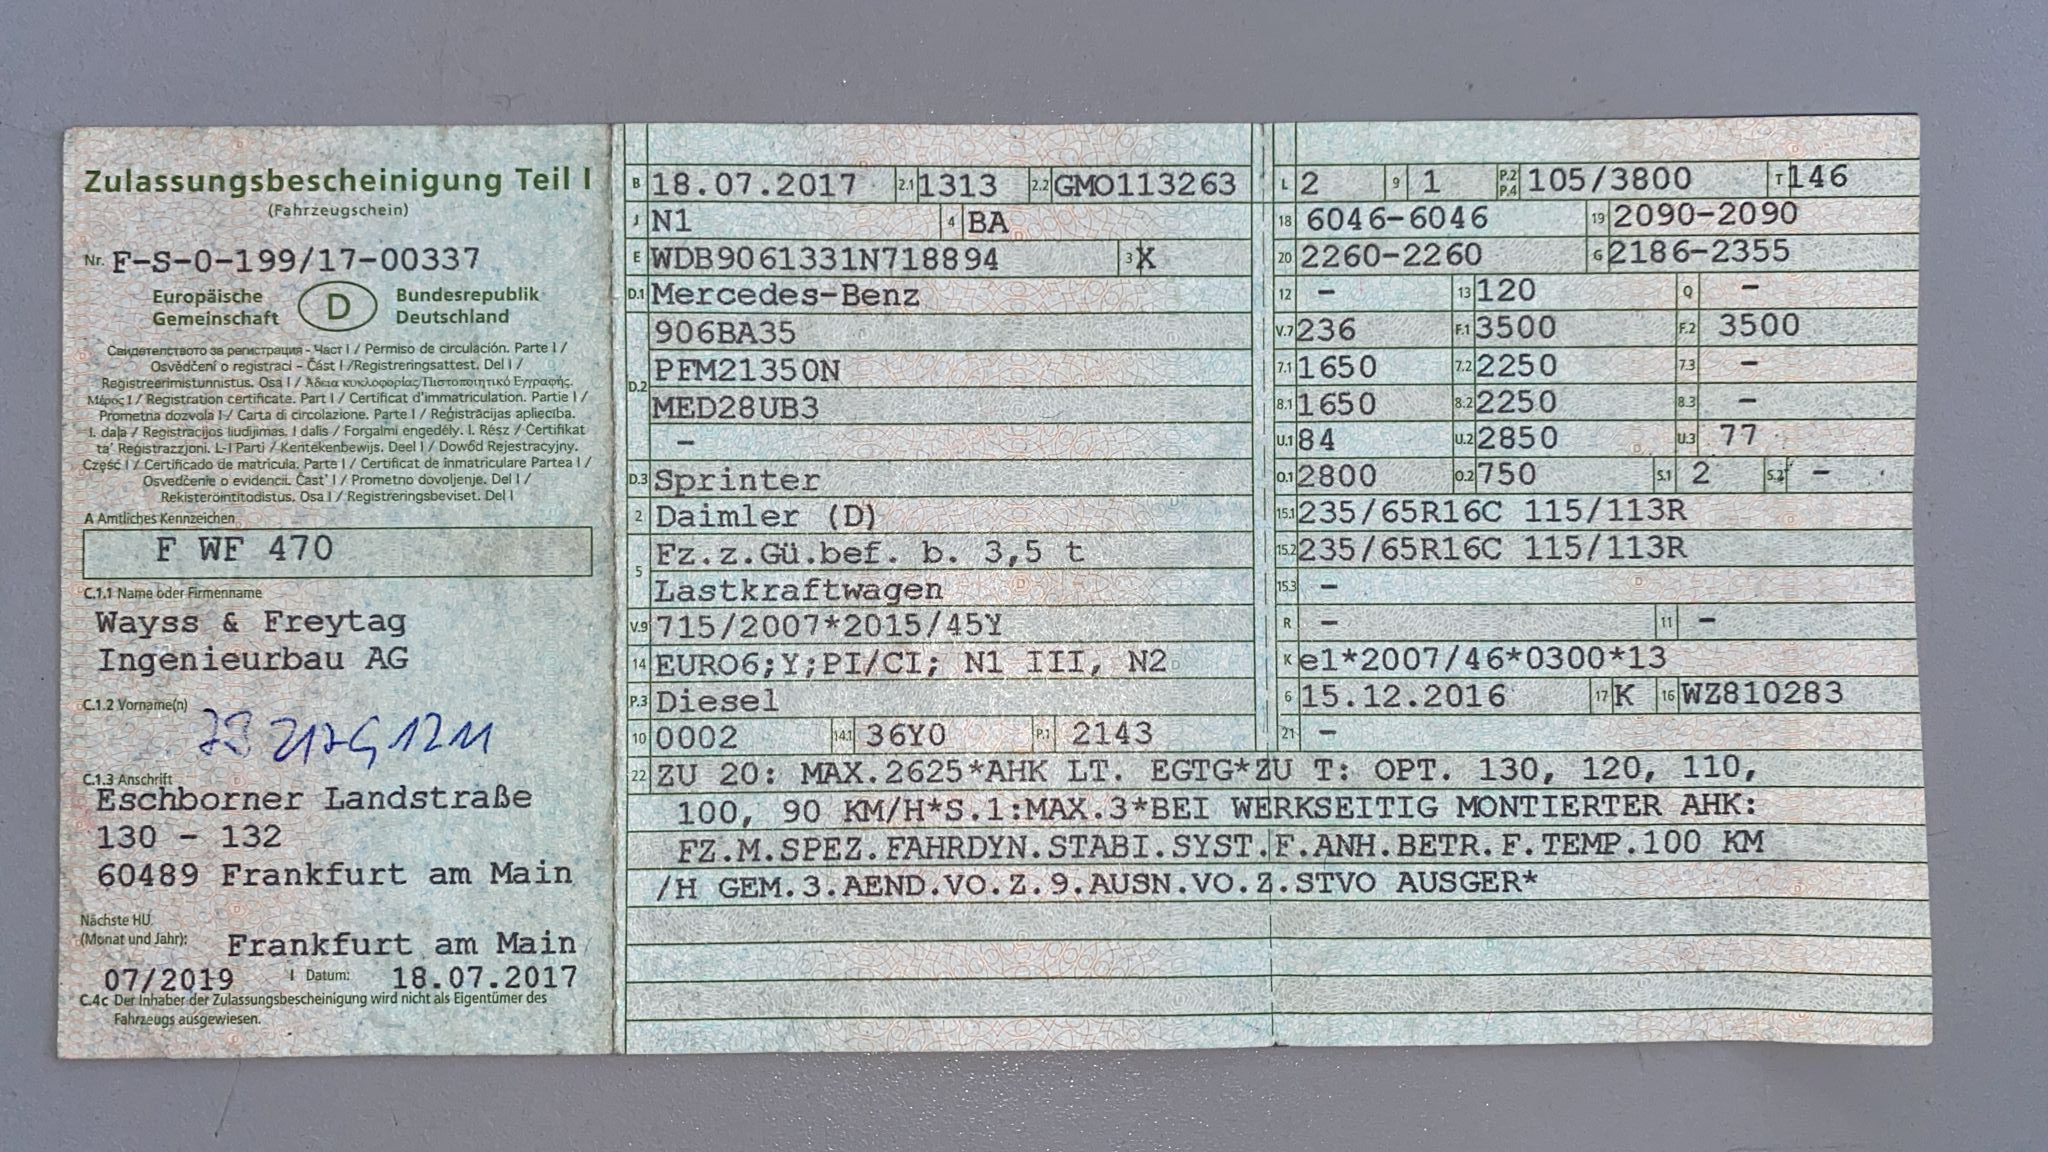 Zulassungsbescheinigung Teil I
(Fahrzeugschein)
Nr. F-S-0-199/17-00337
Europäische Gemeinschaft D Bundesrepublik Deutschland
Свидетелството за регистрация - Част I / Permiso de circulación. Parte I /
Osvědčení o registraci – Část I /Registreringsattest. Del I /
Registreerimistunnistus. Osa I / Άδεια κυκλοφορίας/Πιστοποιητικό Εγγραφής.
Μέρος I / Registration certificate. Part I / Certificat d'immatriculation. Partie I /
Prometna dozvola I / Carta di circolazione. Parte I / Reģistrācijas apliecība.
I. daļa / Registracijos liudijimas. I dalis / Forgalmi engedély. I. Rész / Ċertifikat
ta' Reġistrazzjoni. L-I Parti / Kentekenbewijs. Deel I / Dowód Rejestracyjny.
Część I / Certificado de matrícula. Parte I / Certificat de înmatriculare Partea I /
Osvedčenie o evidencii. Časť I / Prometno dovoljenje. Del I /
Rekisteröintitodistus. Osa I / Registreringsbeviset. Del I
A Amtliches Kennzeichen
F WF 470
C.1.1 Name oder Firmenname
Wayss & Freytag
Ingenieurbau AG
C.1.2 Vorname(n)
C.1.3 Anschrift
Eschborner Landstraße
130 - 132
60489 Frankfurt am Main
Nächste HU
(Monat und Jahr): Frankfurt am Main
07/2019 Datum: 18.07.2017
C.4c Der Inhaber der Zulassungsbescheinigung wird nicht als Eigentümer des
Fahrzeugs ausgewiesen.
B 18.07.2017 2.1 1313 2.2 GMO113263
J N1 4 BA
E WDB9061331N718894 3 X
D.1 Mercedes-Benz
906BA35
D.2 PFM21350N
MED28UB3
-
D.3 Sprinter
2 Daimler (D)
5 Fz.z.Gü.bef. b. 3,5 t
Lastkraftwagen
V.9 715/2007*2015/45Y
14 EURO6;Y;PI/CI; N1 III, N2
P.3 Diesel
10 0002 14.1 36Y0 P.1 2143
L 2 9 1 P.2 P.4 105/3800 T 146
18 6046-6046 19 2090-2090
20 2260-2260 G 2186-2355
12 - 13 120 Q -
V.7 236 F.1 3500 F.2 3500
7.1 1650 7.2 2250 7.3 -
8.1 1650 8.2 2250 8.3 -
U.1 84 U.2 2850 U.3 77
O.1 2800 O.2 750 S.1 2 S.2 -
15.1 235/65R16C 115/113R
15.2 235/65R16C 115/113R
15.3 -
R - 11 -
K e1*2007/46*0300*13
6 15.12.2016 17 K 16 WZ810283
21 -
22 ZU 20: MAX.2625*AHK LT. EGTG*ZU T: OPT. 130, 120, 110,
100, 90 KM/H*S.1:MAX.3*BEI WERKSEITIG MONTIERTER AHK:
FZ.M.SPEZ.FAHRDYN.STABI.SYST.F.ANH.BETR.F.TEMP.100 KM
/H GEM.3.AEND.VO.Z.9.AUSN.VO.Z.STVO AUSGER*